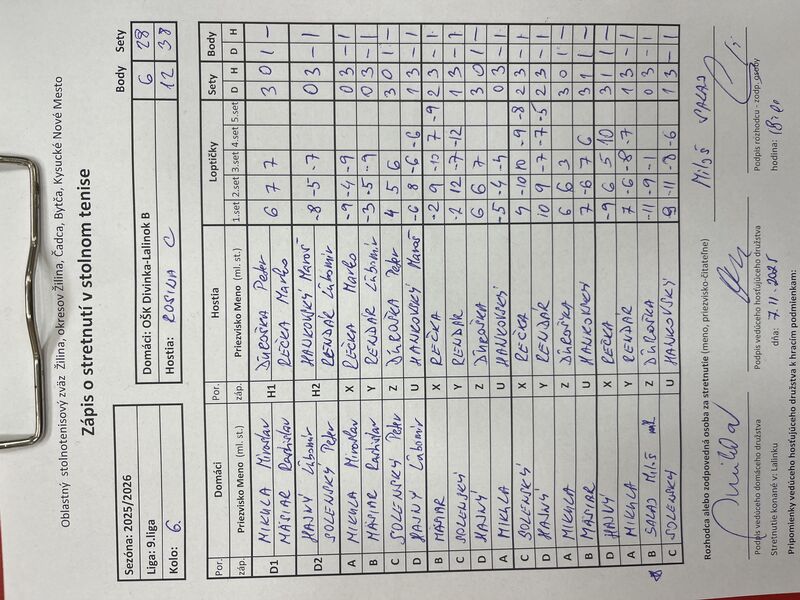 Oblastný stolnotenisový zväz Žilina, okresov Žilina, Čadca, Bytča, Kysucké Nové Mesto
Zápis o stretnutí v stolnom tenise
Sezóna: 2025/2026
Liga: 9.liga
Kolo: 6.
Body Sety
Domáci: OŠK Divinka-Lalinok B 6 28
Hostia: ROSINA C 12 38
Por. Domáci Por. Hostia Loptičky Sety Body
záp. Priezvisko Meno (ml. st.) záp. Priezvisko Meno (ml. st.) 1.set 2.set 3.set 4.set 5.set D H D H
D1 MIKULA Miroslav H1 ĎUROŠKA Peter 6 7 7 3 0 1 -
MASIAR Rastislav REČKA Marko
D2 HAJNÝ Ľubomír H2 HANKOVSKÝ Maroš -8 -5 -7 0 3 - 1
SOLENSKÝ Peter RENDÁR Ľubomír
A MIKULA Miroslav X REČKA Marko -9 -4 -9 0 3 - 1
B MASIAR Rastislav Y RENDÁR Ľubomír -3 -5 -9 0 3 - 1
C SOLENSKÝ Peter Z ĎUROŠKA Peter 4 5 6 3 0 1 -
D HAJNÝ Ľubomír U HANKOVSKÝ Maroš -6 8 -6 -6 1 3 - 1
B MASIAR X REČKA -2 9 -10 7 -9 2 3 - 1
C SOLENSKÝ Y RENDÁR -2 12 -7 -12 1 3 - 1
D HAJNÝ Z ĎUROŠKA 6 6 7 3 0 1 -
A MIKULA U HANKOVSKÝ -5 -4 0 3 - 1
C SOLENSKÝ X REČKA -10 10 -9 -8 2 3 - 1
D HAJNÝ Y RENDÁR 10 9 -7 -7 -5 2 3 - 1
A MIKULA Z ĎUROŠKA 6 6 3 3 0 1 -
B MASIAR U HANKOVSKÝ 7 -6 7 6 3 1 1 -
D HAJNÝ X REČKA -9 6 5 10 3 1 1 -
A MIKULA Y RENDÁR 7 -6 -8 -7 1 3 - 1
B SALAJ Miloš ml. Z ĎUROŠKA -11 -9 -1 0 3 - 1
C SOLENSKÝ U HANKOVSKÝ 9 -11 -8 -6 1 3 - 1
Rozhodca alebo zodpovedná osoba za stretnutie (meno, priezvisko-čitateľne) Miloš SALAJ
Podpis vedúceho domáceho družstva Podpis vedúceho hosťujúceho družstva Podpis rozhodcu - zodp. osoby
Stretnutie konané v: Lalinku dňa: 7.11.2025 hodina: 18:00
Pripomienky vedúceho hosťujúceho družstva k hracím podmienkam: